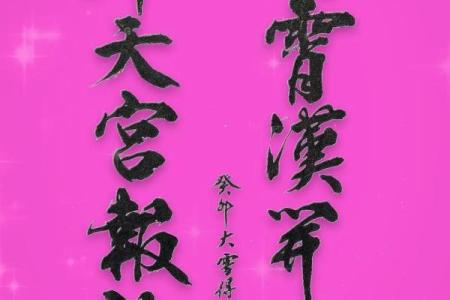 霄漢開
癸卯大雪得
天宮報